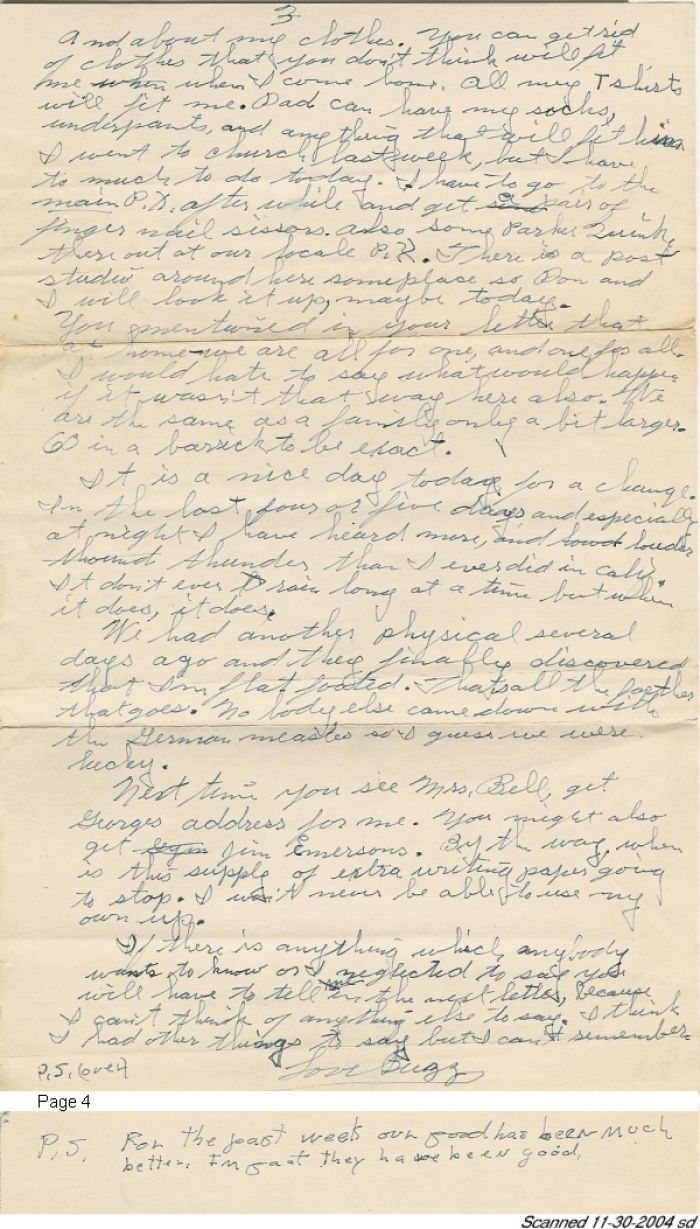 3
And about my clothes. You can get rid
of clothes that you don't think will fit
me when when I come home. All my T shirts
will fit me. Dad can have my socks,
underpants, and anything that will fit him.
I went to church last week, but I have
to much to do today. I have to go to the
main P.X. after while and get pair of
finger nail sissors. Also some Parker Quink,
there out at our locale P.X. There is a post
studio around here someplace so Don and
I will look it up, maybe today.
You mentioned in your letter that
at home we are all for one, and one for all.
I would hate to say what would happen
if it wasn't that way here also. We
are the same as a family only a bit larger.
60 in a barrick to be exact.
It is a nice day today for a change.
In the last four or five days and especially
at night I have heard more, and loud louder
thound thunder than I ever did in calif.
It don't ever rain long at a time but when
it does, it does.
We had another physical several
days ago and they finally discovered
that I'm flat footed. Thats all the farther
that goes. No body else came down with
the German measles so I guess we were
lucky.
Next time you see Mrs. Bell, get
Georges address for me. You might also
get Jim Emersons. By the way, when
is this supply of extra writing paper going
to stop. I won't never be able to use my
own up.
If there is anything which anybody
wants to know or I neglected to say you
will have to tell in the next letter, because
I can't think of anything else to say. I think
I had other things to say but I can't remember.
Love Bugz
P.S. (over)
Page 4
P.S. For the past week our food has been much
better. In fact they have been good.
Scanned 11-30-2004 sd